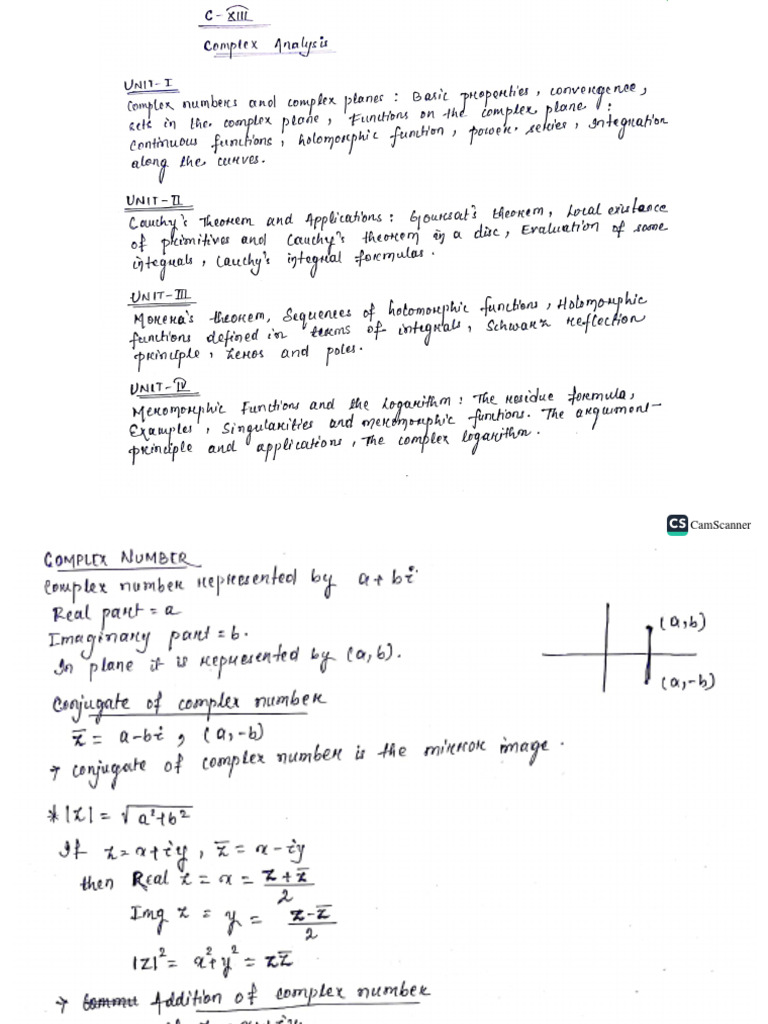 C-XIII
Complex Analysis
UNIT-I
Complex numbers and complex planes : Basic properties, convergence,
sets in the complex plane, Functions on the complex plane :
Continuous functions, holomorphic function, power series, Integration
along the curves.
UNIT-II
Cauchy's Theorem and Applications : Goursat's theorem, Local existance
of primitives and Cauchy's theorem in a disc, Evaluation of some
integrals, Cauchy's integral formulas.
UNIT-III
Morera's theorem, Sequences of holomorphic functions, Holomorphic
functions defined in terms of integrals, Schwarz reflection
principle, zeros and poles.
UNIT-IV
Meromorphic Functions and the Logarithm : The residue formula,
Examples, Singularities and meromorphic functions. The argument-
principle and applications, The complex logarithm.
CS CamScanner
COMPLEX NUMBER
Complex number represented by a+bi
Real part = a
Imaginary part = b.
In plane it is represented by (a,b).
(a,b)
(a,-b)
Conjugate of complex number
z̄ = a-bi, (a,-b)
→ conjugate of complex number is the mirror image.
* |z| = √a²+b²
If z = x+iy, z̄ = x-iy
then Real z = x = z+z̄/2
Img z = y = z-z̄/2
|z|² = x²+y² = zz̄
→ Addition of complex number